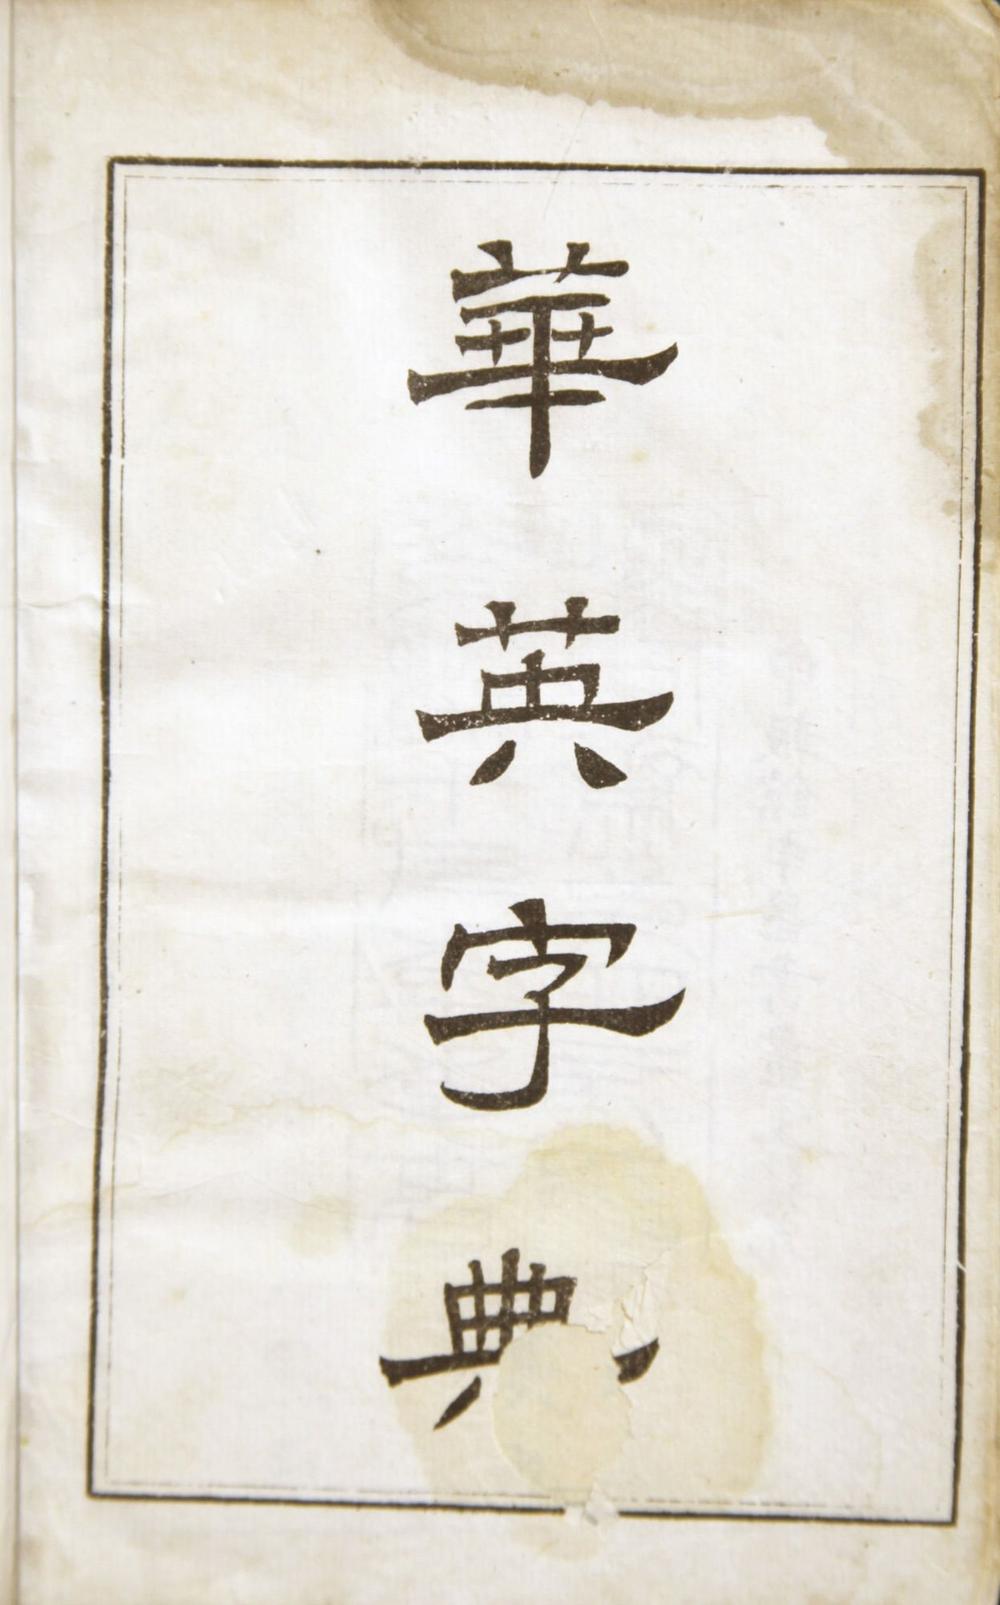 華英字典